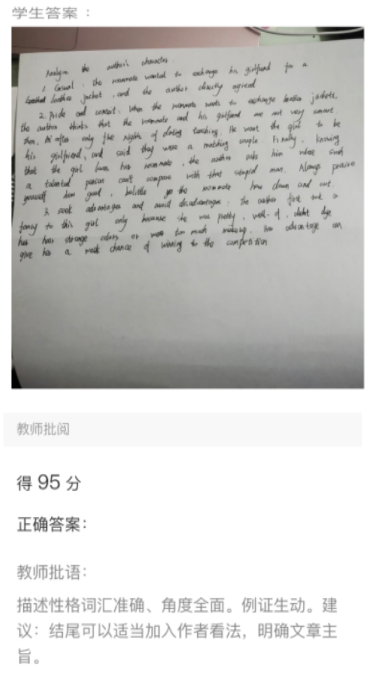 学生答案：
Analyze the author's character.
1. Casual: the roommate wanted to exchange his girlfriend for a
leather jacket, and the author directly agreed
2. Pride and conceit: When the roommate wants to exchange leather jackets,
the author thinks that the roommate and his girlfriend are not very
then, After only five nights of dating teaching, He want the girl to be
his girlfriend, and said they were a matching couple. Finally, knowing
that the girl loves his roommate, the author asks him what such
a talented person can't compare with that stupid man. Always praise
yourself how good, belittle the roommate how down and out.
3. seek advantages and avoid disadvantages: the author first took a
fancy to this girl only because she was pretty, well-of, didn't dye
her hair strange colors or wear too much makeup. Her advantage can
give him a chance of winning to the competition
教师批阅
得 95 分
正确答案：
教师批语：
描述性格词汇准确、角度全面。例证生动。建
议：结尾可以适当加入作者看法，明确文章主
旨。